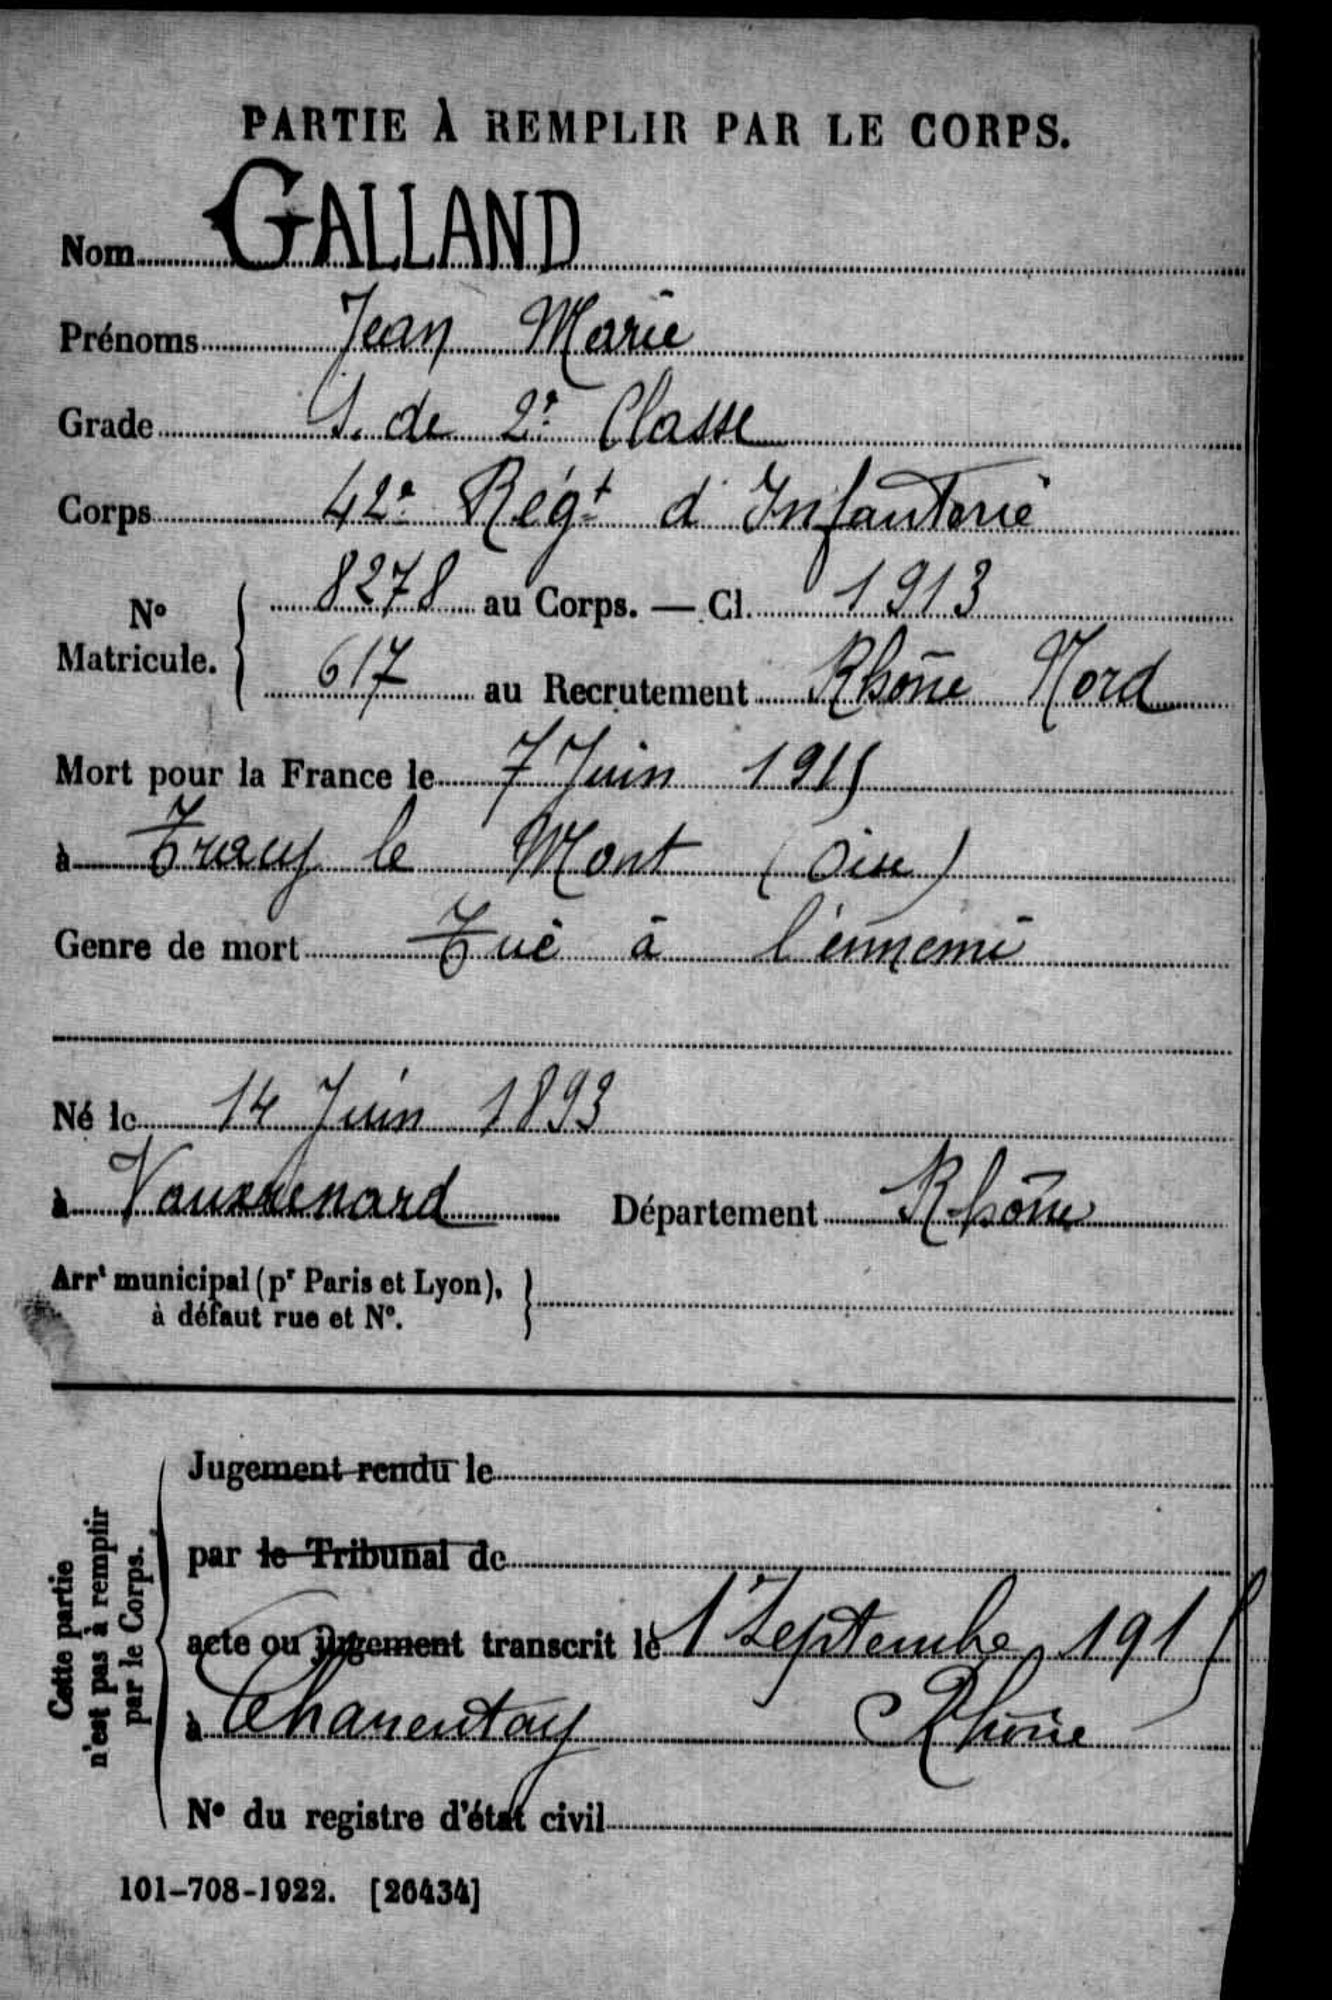 PARTIE À REMPLIR PAR LE CORPS.
Nom GALLAND
Prénoms Jean Marie
Grade S. de 2e Classe
Corps 42e Régt d'Infanterie
No Matricule. 8278 au Corps. — Cl. 1913
617 au Recrutement Rhône Nord
Mort pour la France le 7 Juin 1915
à Tracy le Mont (Oise)
Genre de mort Tué à l'ennemi
Né le 14 Juin 1893
à Vauxrenard Département Rhône
Arrt municipal (pr Paris et Lyon),
à défaut rue et No.
Cette partie
n'est pas à remplir
par le Corps.
Jugement rendu le
par le Tribunal de
acte ou jugement transcrit le 1 Septembre 1915
à Charentay Rhône
No du registre d'état civil
101-708-1922. [26434]